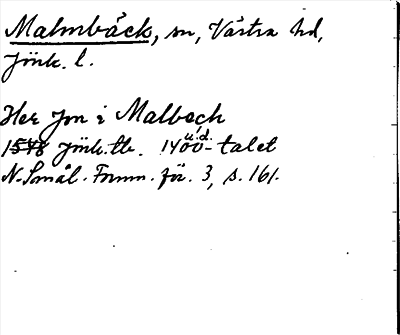 Malmbäck, sn, Västra hd,
Jönk. l.
Her Jon i Malbech
1548 Jönk. tb. 1400 u.d. -talet
N. Smål. Fornm. för. 3, s. 161.